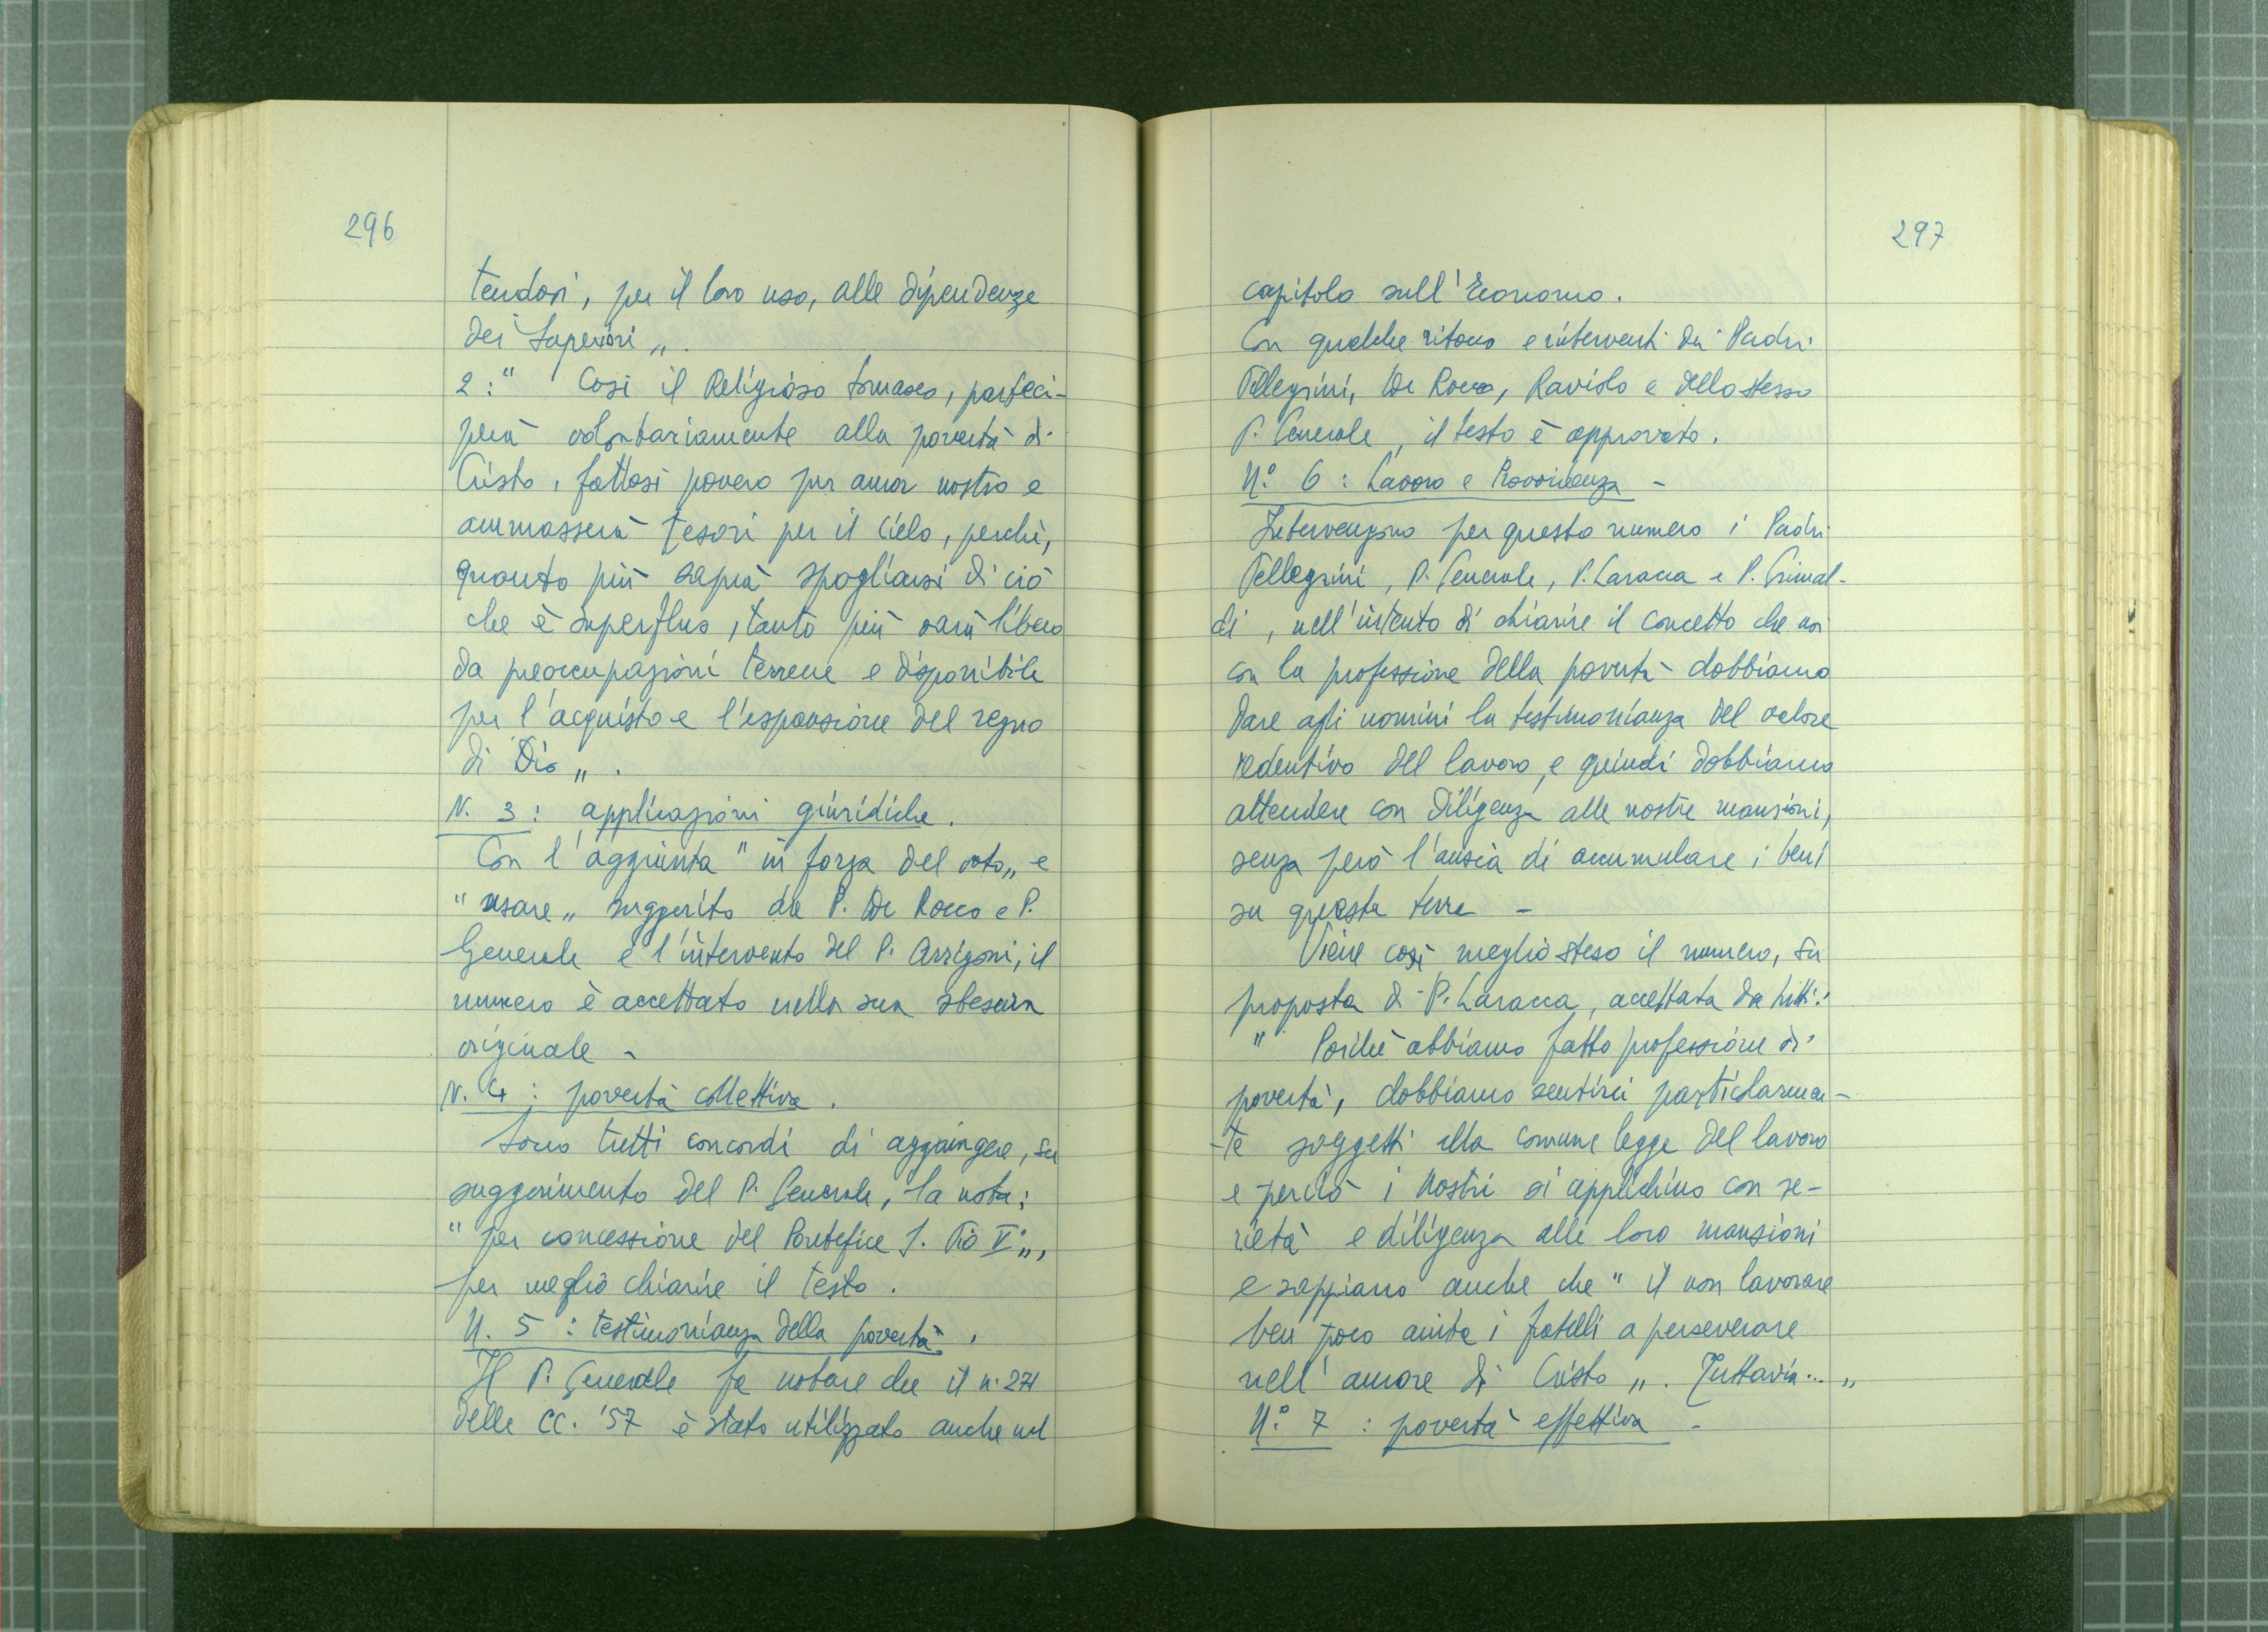 296
tendosi, per il loro uso, alle dipendenze
dei Superiori„.
2:" Così il Religioso somasco, parteci-
perà volontariamente alla povertà di
Cristo, fattosi povero per amor nostro e
ammasserà tesori per il Cielo, perchè,
quanto più saprà spogliarsi di ciò
che è superfluo, tanto più sarà libero
da preoccupazioni terrene e disponibile
per l'acquisto e l'espansione del regno
di Dio„.
N. 3: applicazioni giuridiche.
Con l'aggiunta "in forza del voto„ e
"usare„ suggerito da P. De Rocco e P.
Generale e l'intervento del P. Arrigoni, il
numero è accettato nella sua stesura
originale -
N. 4: povertà collettiva.
Sono tutti concordi di aggiungere, su
suggerimento del P. Generale, la nota:
"per concessione del Pontefice S. Pio V°„,
per meglio chiarire il testo.
N. 5: testimonianza della povertà.
Il P. Generale fa notare che il n. 271
delle CC. '57 è stato utilizzato anche nel
297
capitolo sull'Economo.
Con qualche ritocco e interventi dei Padri
Pellegrini, De Rocco, Raviolo e dello stesso
P. Generale, il testo è approvato.
N.° 6: Lavoro e Provvidenza -
Intervengono per questo numero i Padri
Pellegrini, P. Generale, P. Laracca e P. Grimal-
di, nell'intento di chiarire il concetto che noi
con la professione della povertà dobbiamo
dare agli uomini la testimonianza del valore
redentivo del lavoro, e quindi dobbiamo
attendere con diligenza alle nostre mansioni,
senza però l'ansia di accumulare i beni
su questa terra -
Viene così meglio steso il numero, su
proposta di P. Laracca, accettata da tutti:
" Poichè abbiamo fatto professione di
povertà, dobbiamo sentirci particolarmen-
-te soggetti alla comune legge del lavoro
e perciò i Nostri si applichino con se-
rietà e diligenza alle loro mansioni
e sappiano anche che "il non lavorare
ben poco aiuta i fratelli a perseverare
nell'amore di Cristo„. Tuttavia...„
N.° 7: povertà effettiva -